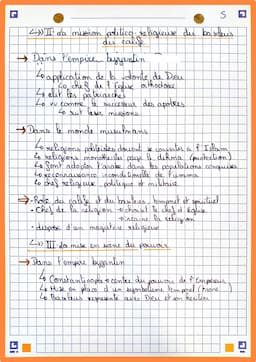 5
↳ II: La mission politico-religieuse du basileus
du calife
→ Dans l'empire byzantin
↳ application de la volonté de Dieu
↳ chef de l'église orthodoxe
↳ élit les patriarches
↳ vu comme le successeur des apôtres
↳ suit leurs missions
→ Dans le monde musulmans
↳ religions polithéistes doivent se convertir à l'Islam
↳ religions monothéistes paye la dihma (protection)
↳ font adopter l'arabe dans les populations conquises
↳ reconnaissance inconditionelle de l'umma
↳ chef religieux, politique et militaire
→ Rôle du calife et du basileus : temporel et spirituel
- Chef de la religion → choisit le chef d'église
→ incarne la religion
- dispose d'un magistère religieux
↳ III: La mise en scène du pouvoir
→ Dans l'empire byzantin
↳ Constantinople = centre du pouvoir de l'Empereur
↳ Mise en place d'un symbolisme temporel / trône
↳ Basileus représenté avec Dieu et son héritier